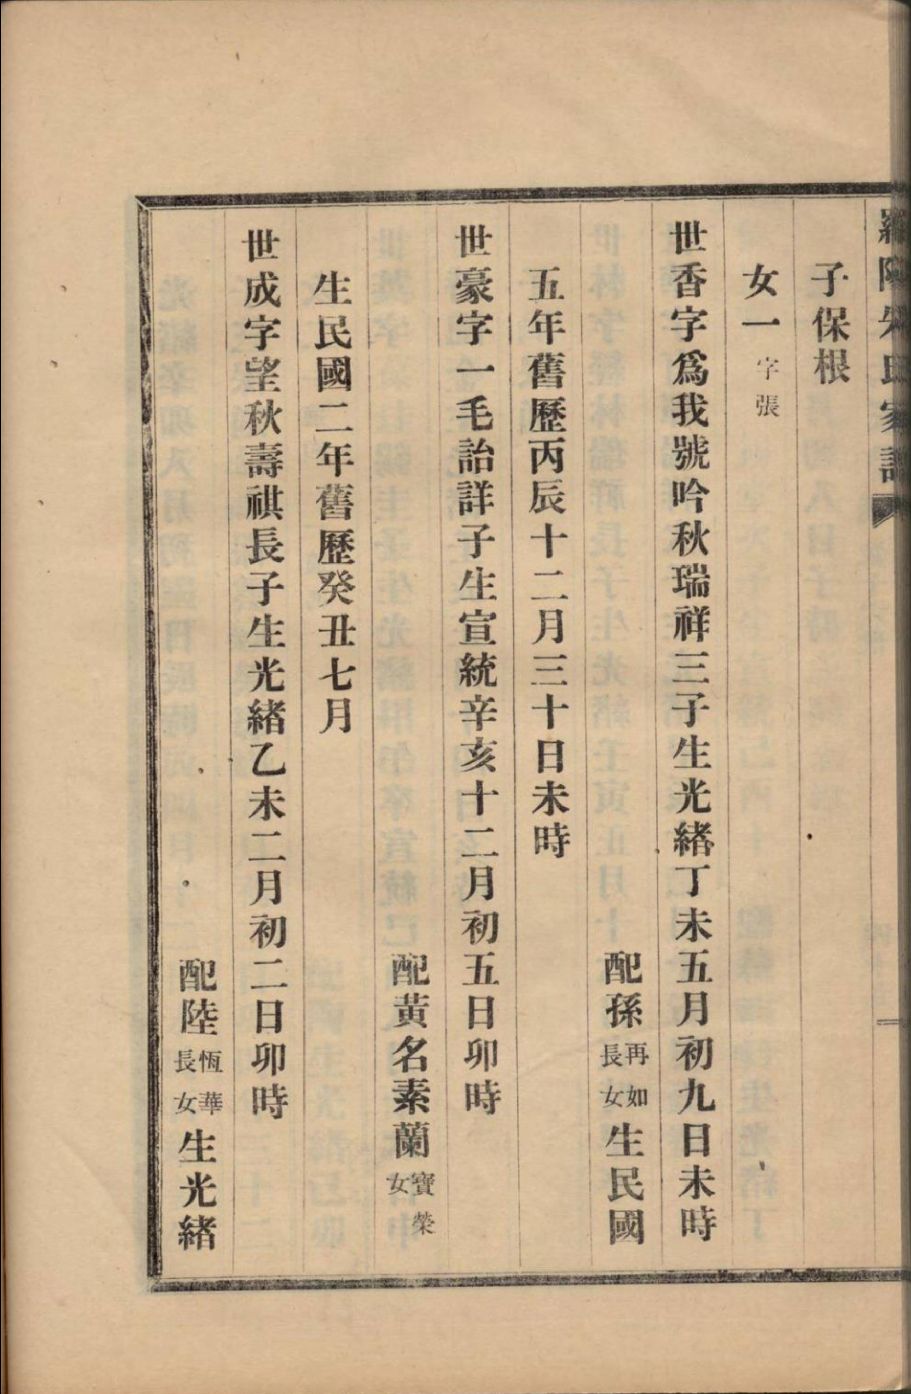 陽朱氏家譜
子保根
女一字張
世香字爲我號吟秋瑞祥三子生光緒丁未五月初九日未時
配孫再如長女生民國
五年舊歷丙辰十二月三十日未時
世豪字一毛詒詳子生宣統辛亥十二月初五日卯時
配黃名素蘭寶榮女
生民國二年舊歷癸丑七月
世成字望秋壽祺長子生光緒乙未二月初二日卯時
配陸恆華長女生光緒